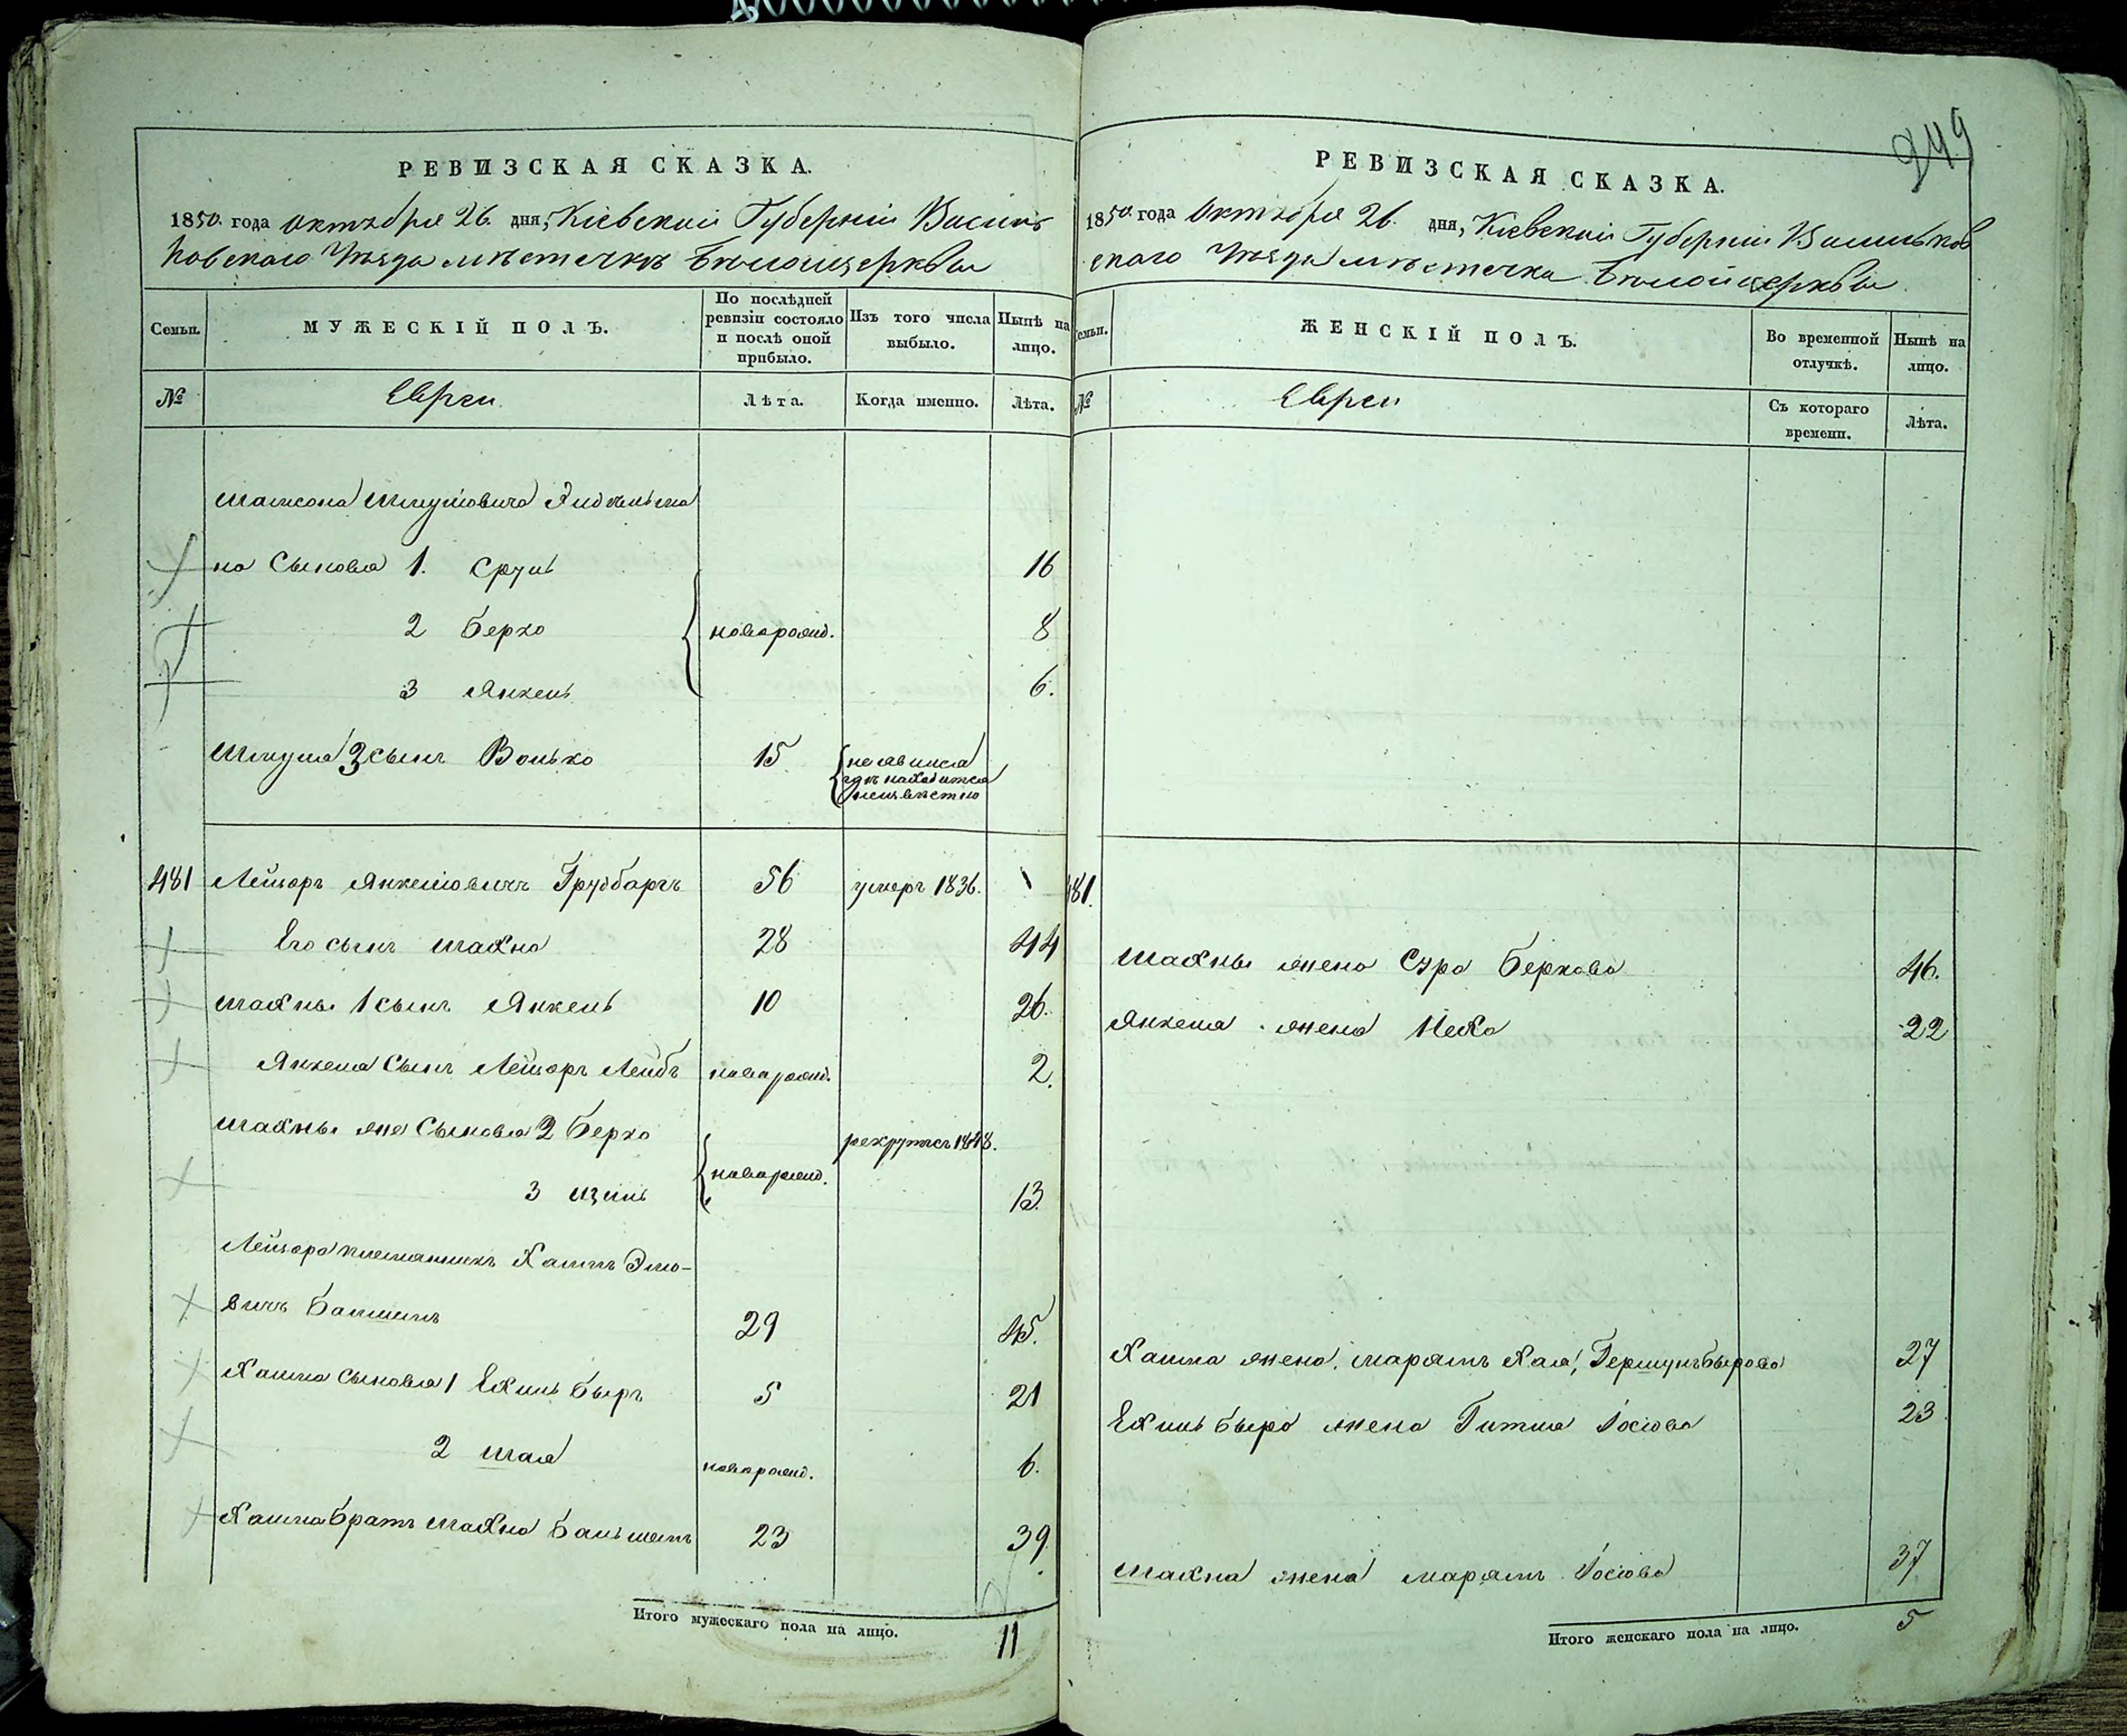 249
РЕВИЗСКАЯ СКАЗКА.
1850. года октября 26. дня, Кіевской Губерніи Василь
ковскаго Уѣзда мѣстечкѣ Бѣлоицеркви
Семьи.
МУЖЕСКІЙ ПОЛЪ.
По послѣдней ревизіи состояло и послѣ оной прибыло.
Изъ того числа выбыло.
Нынѣ на лицо.
№
Евреи
Лѣта.
Когда именно.
Лѣта.
Шмуловича
на сыновья 1. Сруль 16
2 Берко новорожд. 8
3 Янкель 6.
Шмуля 3 сынъ Волько 15 неявился
гдѣ находится
неизвѣстно
481 Лейзоръ Янкелювичъ Грузбаргъ 56 умеръ 1836.
Его сынъ Шахно 28 44
Шахны 1 сынъ Янкель 10 26.
Янкеля сынъ Лейзоръ Лейбъ новорожд. 2.
Шахны же сыновья 2 Берко рекрутъ 1848.
3 Изиль новорожд. 13.
Лейзора племянникъ Хаимъ Элио-
вичъ 29 45.
Хаима сыновья 1 Ехиль Беръ 5 21
2 Шая новорожд. 6.
Хаима братъ Шахно Бальшемъ 23 39.
Итого мужескаго пола на лицо. 11
РЕВИЗСКАЯ СКАЗКА.
1850. года октября 26. дня, Кіевской Губерніи Васильков
скаго Уѣзда мѣстечка Бѣлой церкви
Семьи.
ЖЕНСКІЙ ПОЛЪ.
Во временной отлучкѣ.
Нынѣ на лицо.
№
Евреи
Съ котораго времени.
Лѣта.
481.
Шахны жена Сура Беркова 46.
Янкеля жена Неха 22
Хаима жена Марямъ Хая, 27
Ехиль Бера жена Гитля Іосіова 23
Шахна жена Марямъ Іосіова 37
Итого женскаго пола на лицо. 5